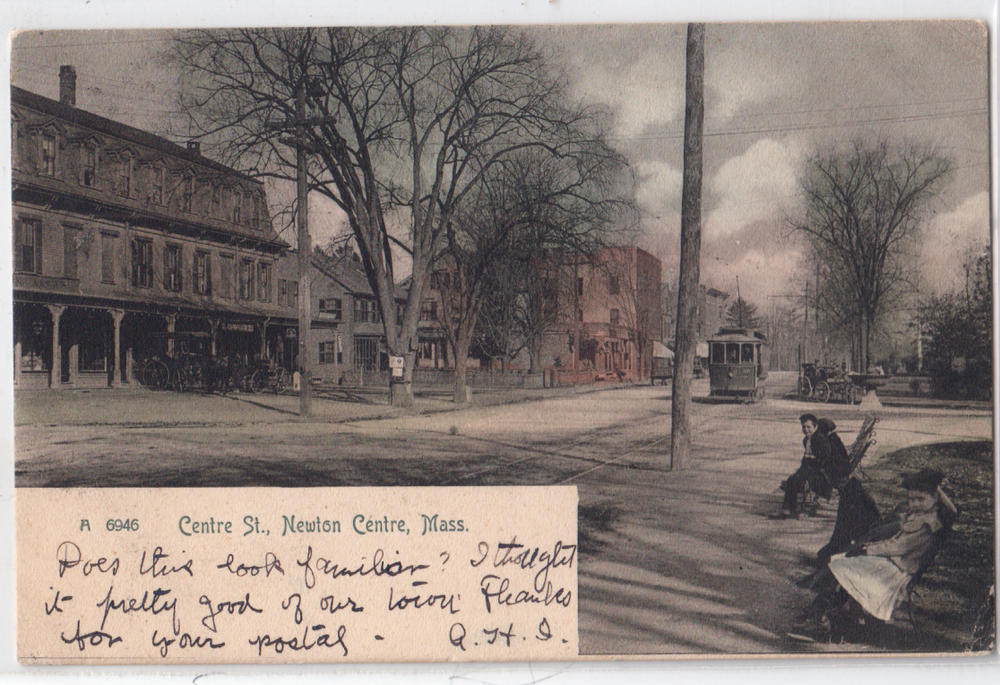 A 6946 Centre St., Newton Centre, Mass.
Does this look familiar? I thought
it pretty good of our town. Thanks
for your postal -